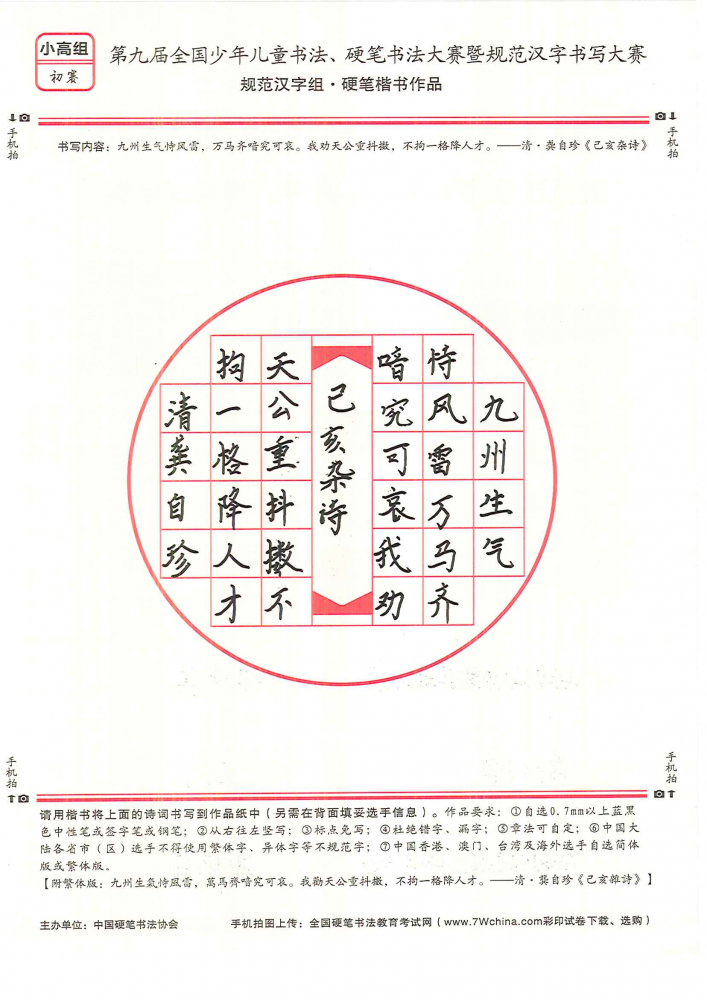 小高组
初赛
第九届全国少年儿童书法、硬笔书法大赛暨规范汉字书写大赛
规范汉字组·硬笔楷书作品
手机拍
手机拍
书写内容：九州生气恃风雷，万马齐喑究可哀。我劝天公重抖擞，不拘一格降人才。——清·龚自珍《己亥杂诗》
九州生气
恃风雷万马齐
喑究可哀我劝
己亥杂诗
天公重抖擞不
拘一格降人才
清龚自珍
手机拍
手机拍
请用楷书将上面的诗词书写到作品纸中（另需在背面填妥选手信息）。作品要求：①自选0.7mm以上蓝黑
色中性笔或签字笔或钢笔；②从右往左竖写；③标点免写；④杜绝错字、漏字；⑤章法可自定；⑥中国大
陆各省市（区）选手不得使用繁体字、异体字等不规范字；⑦中国香港、澳门、台湾及海外选手自选简体
版或繁体版。
【附繁体版：九州生氣恃風雷，萬馬齊喑究可哀。我勸天公重抖擻，不拘一格降人才。——清·龚自珍《己亥雜詩》】
主办单位：中国硬笔书法协会
手机拍图上传：全国硬笔书法教育考试网（www.7Wchina.com彩印试卷下载、选购）